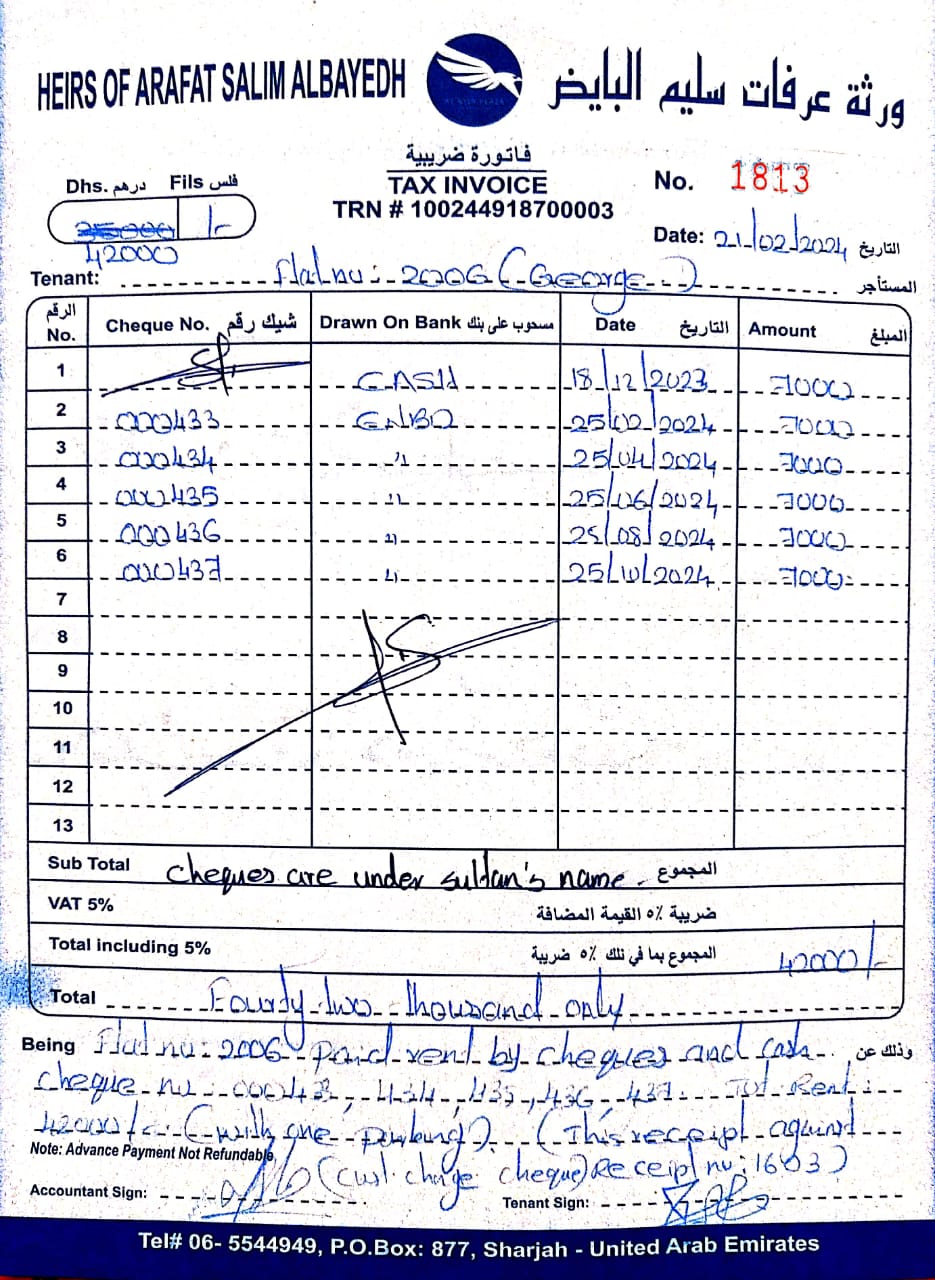 HEIRS OF ARAFAT SALIM ALBAYEDH
ورثة عرفات سليم البايض
فاتورة ضريبية
TAX INVOICE
TRN # 100244918700003
No. 1813
Dhs. درهم Fils فلس
35000 /-
42000
Date: 21/02/2024 التاريخ
Tenant: Flat no:- 2006 (George) المستأجر
الرقم No. Cheque No. شيك رقم Drawn On Bank مسحوب على بنك Date التاريخ Amount المبلغ
1 CASH 18/12/2023 7000
2 000433 ENBD 25/02/2024 7000
3 000434 " 25/04/2024 7000
4 000435 " 25/06/2024 7000
5 000436 " 25/08/2024 7000
6 000437 " 25/10/2024 7000
7
8
9
10
11
12
13
Sub Total cheques are under sultan's name - المجموع
VAT 5% ضريبة ٥% القيمة المضافة
Total including 5% المجموع بما في ذلك ٥% ضريبة 42000/-
Total Fourty two thousand only
Being Flat no: 2006 paid rent by cheques and cash وذلك عن
cheque no: 000433, 434, 435, 436, 437. Tot. Rent:
42000/- (with one parking). (This receipt against
Note: Advance Payment Not Refundable,
(Cust. change cheque) Receipt no: 1603)
Accountant Sign: Tenant Sign:
Tel# 06- 5544949, P.O.Box: 877, Sharjah - United Arab Emirates